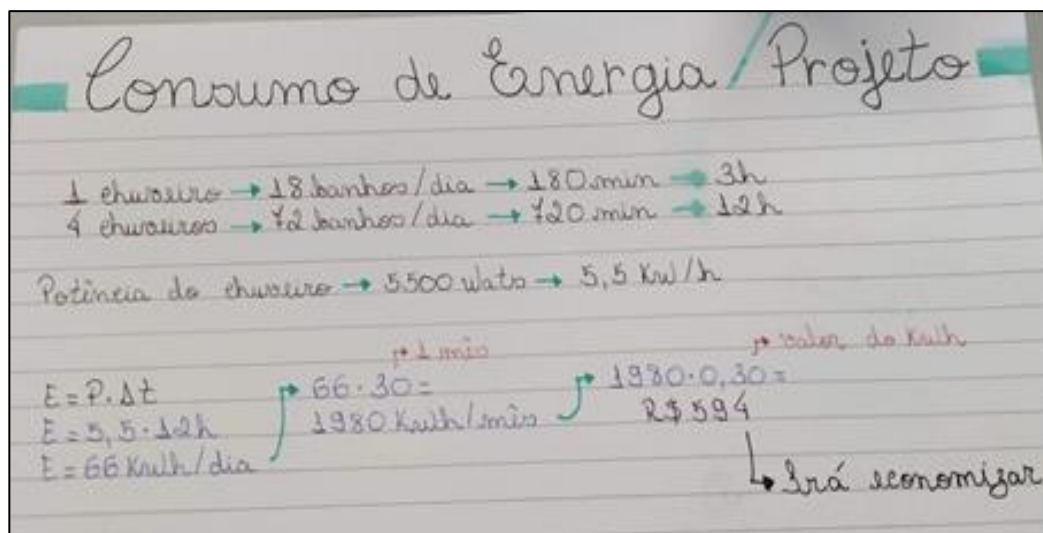 Consumo de Energia / Projeto
1 chuveiro → 18 banhos/dia → 180 min → 3h
4 chuveiros → 72 banhos/dia → 720 min → 12h
Potência do chuveiro → 5500 watts → 5,5 Kw/h
↱ 1 mês
↱ valor do Kwh
E = P.Δt
E = 5,5 · 12h
E = 66 Kwh/dia
66 · 30 =
1980 Kwh/mês
1980 · 0,30 =
R$ 594
↳ Irá economizar